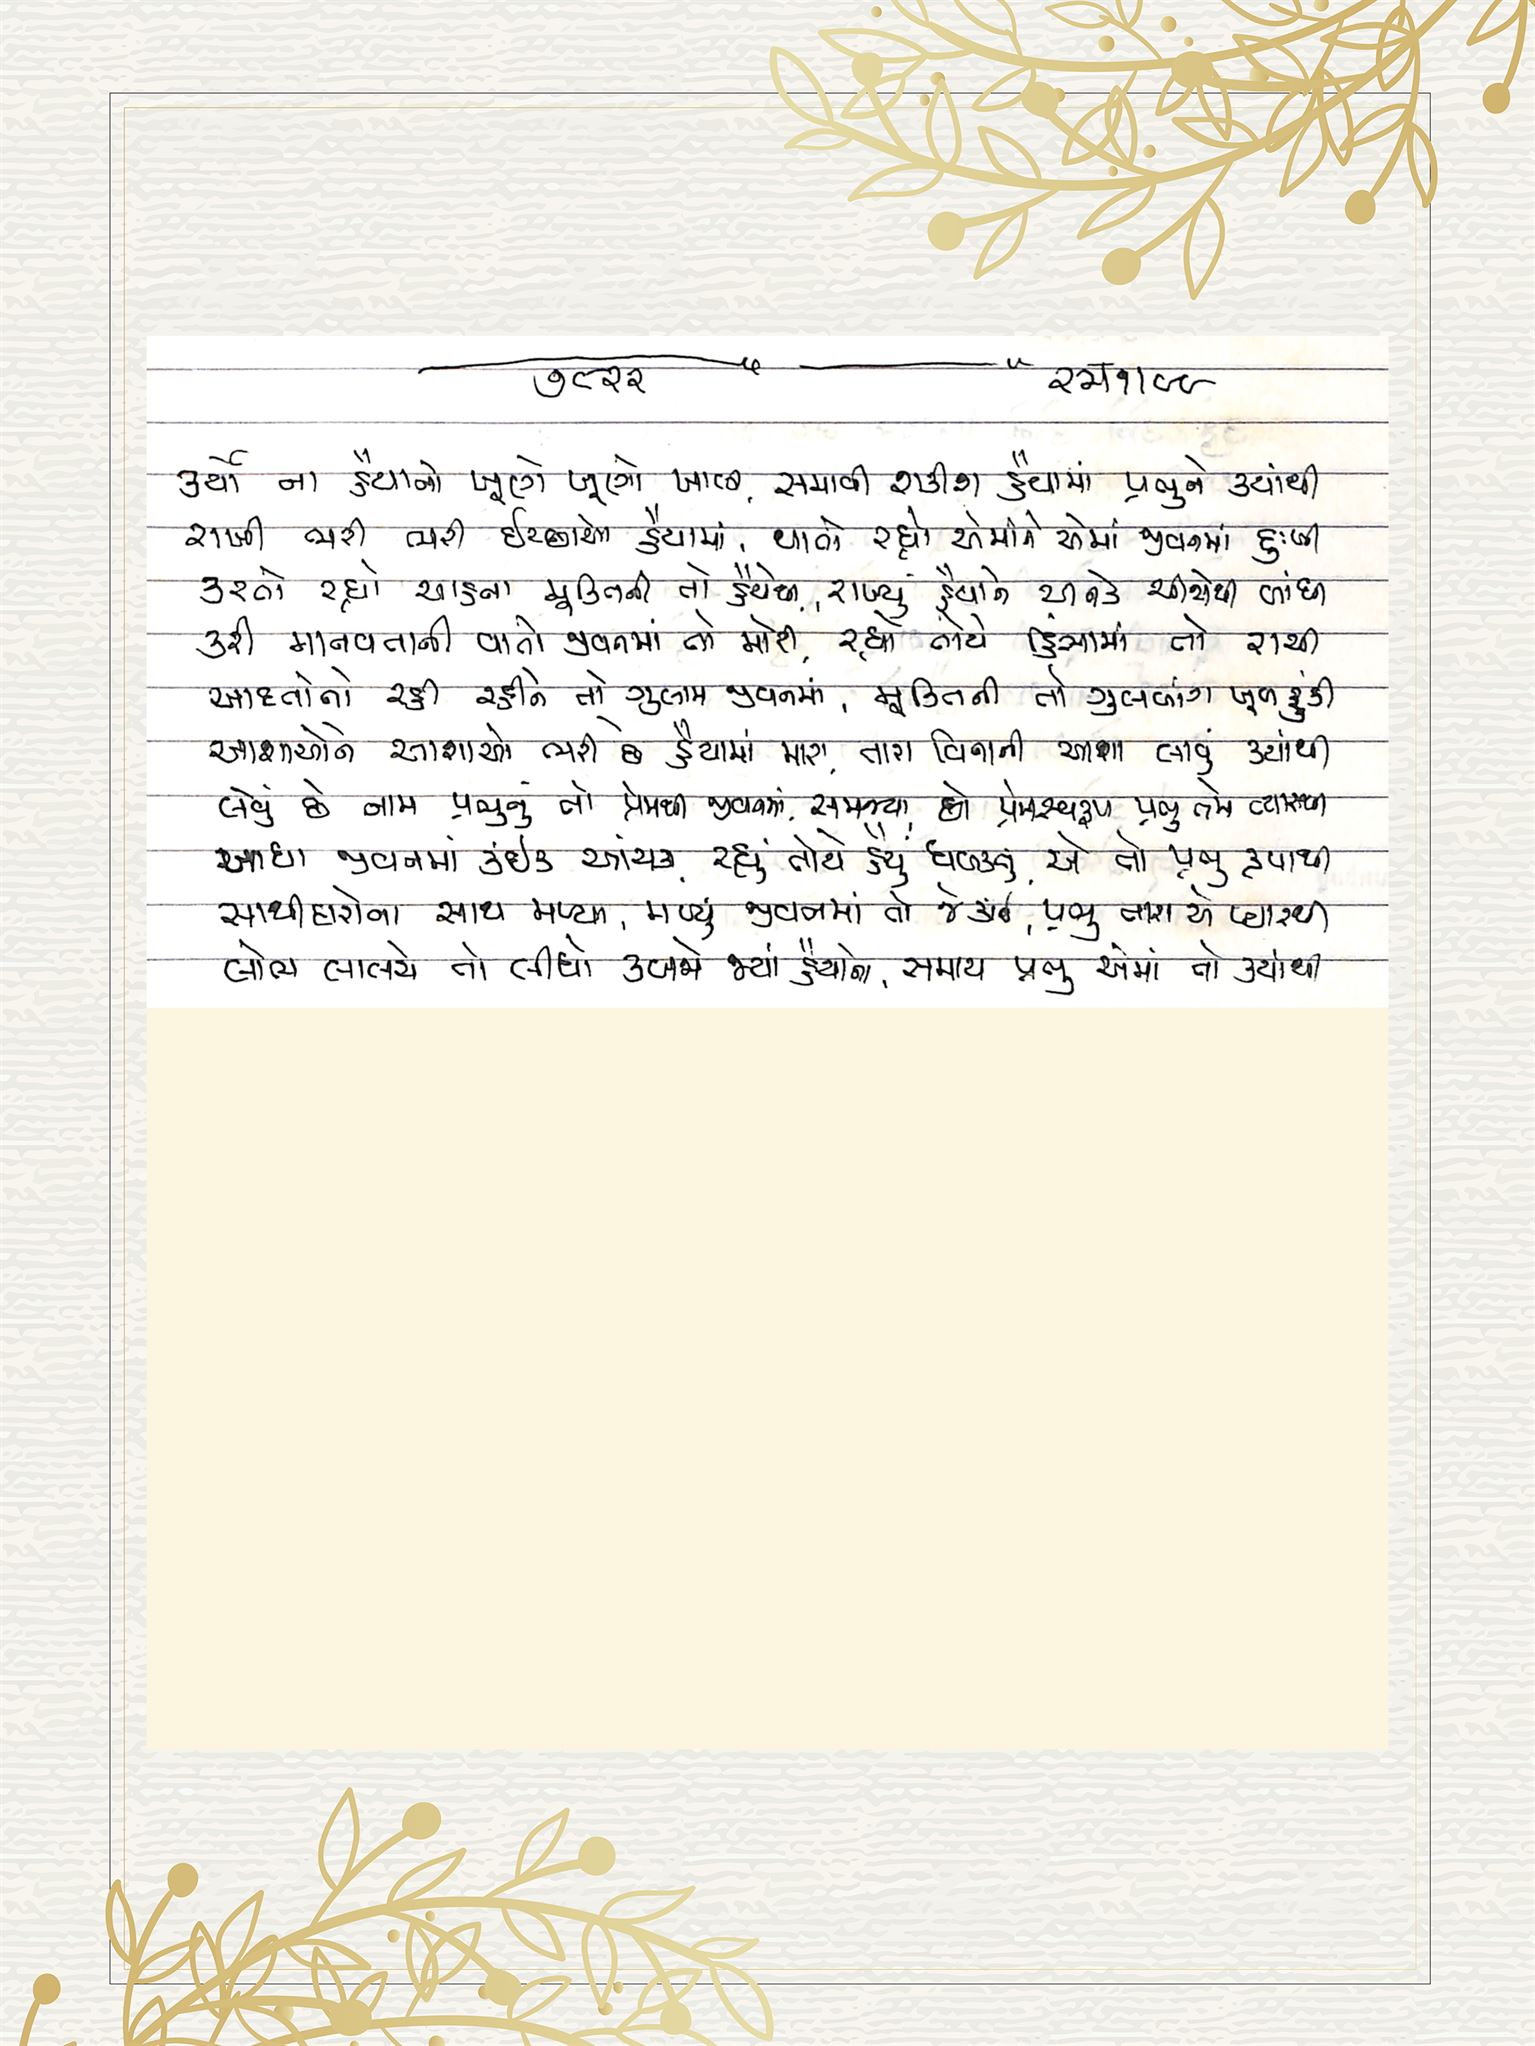 ૭૯૨૨
કર્યો ના હૈયાનો ખૂણે ખૂણો ખાલી, સમાવી શકીશ હૈયામાં પ્રભુને ક્યાંથી
રાખી ભરી ભરી ઈચ્છાઓ હૈયામાં, થાતો રહ્યો એમાંને એમાં જીવનમાં દુઃખી
કરતો રહ્યો ચાહના મુક્તિની તો હૈયેથી, રાખ્યું હૈયાને અનેક ચીજોથી બાંધી
કરી માનવતાની વાતો જીવનમાં તો મોટી, રહ્યો તોયે હિંસામાં તો રાચી
આદતોનો રહી રહીને તો ગુલામ જીવનમાં, મુક્તિની તો ગુલબાંગ ખૂબ ફૂંકી
આશાઓને આશાઓ ભરી છે હૈયામાં મારા, તારા વિનાની આશા લાવું ક્યાંથી
લેવું છે નામ પ્રભુનું તો પ્રેમથી જીવનમાં, સમજ્યા, છો પ્રેમસ્વરૂપ પ્રભુ તમે ત્યારથી
આવ્યા જીવનમાં કંઈક આંચકા, રહ્યું તોયે હૈયું ધબકતું, એ તો પ્રભુ કૃપાથી
સાથીદારોના સાથ મળ્યા, મળ્યું જીવનમાં તો જે કાંઈ, પ્રભુ તારા એ પ્યારથી
લોભ લાલચે તો લીધો કબજો જ્યાં હૈયાનો, સમાય પ્રભુ એમાં તો ક્યાંથી